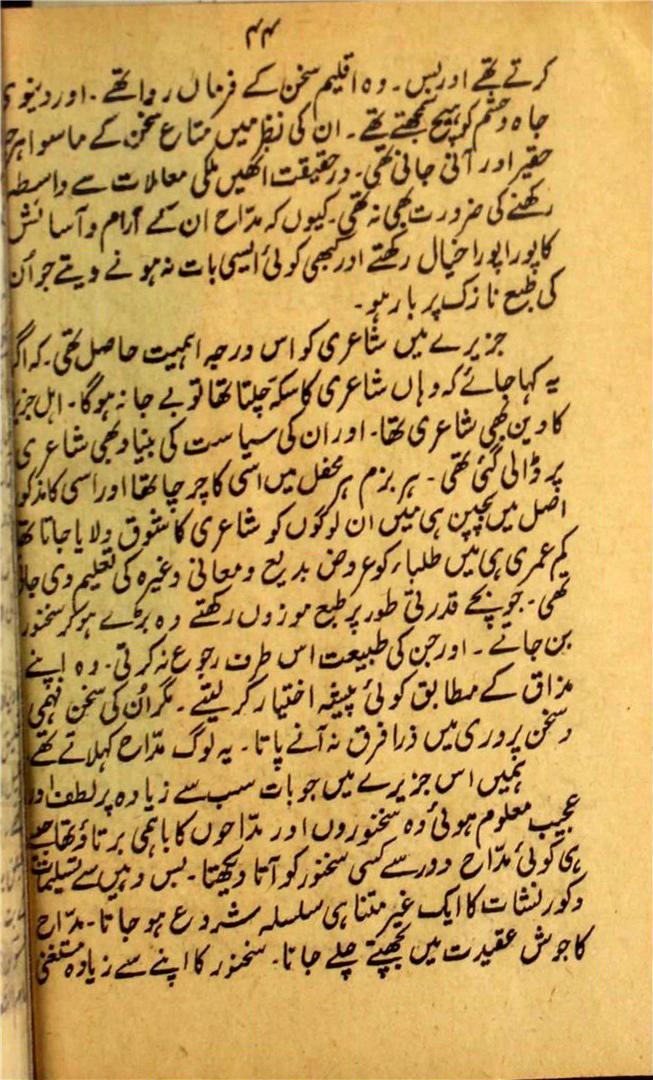 ۴۴
کرتے تھے اور بس۔ وہ اقلیم سخن کے فرماں روا تھے۔ اور دینوی
جاہ و حشم کو ہیچ سمجھتے تھے۔ ان کی نظر میں متاع سخن کے ماسوا ہر
حقیر اور آنی جانی تھی۔ درحقیقت انھیں ملکی معاملات سے واسطہ
رکھنے کی ضرورت بھی نہ تھی۔ کیوں کہ مدّاح ان کے آرام و آسائش
کا پورا پورا خیال رکھتے اور کبھی کوئی ایسی بات نہ ہونے دیتے جو اُن
کی طبع نازک پر بار ہو۔
جزیرے میں شاعری کو اس درجہ اہمیت حاصل تھی۔ کہ اگر
یہ کہا جائے کہ وہاں شاعری کا سکّہ چلتا تھا تو بے جا نہ ہوگا۔ اہل
کا دین بھی شاعری تھا۔ اور ان کی سیاست کی بنیاد بھی شاعری
پر ڈالی گئی تھی۔ ہر بزم ہر محفل میں اسی کا چرچا تھا اور اسی کا
اصل میں بچپن ہی میں ان لوگوں کو شاعری کا شوق دلایا جاتا
کم عمری ہی میں طلباء کو عروض بدیع و معانی وغیرہ کی تعلیم دی
تھی۔ جو بچے قدرتی طور پر طبع موزوں رکھتے وہ بڑے ہو کر سخنور
بن جاتے۔ اور جن کی طبیعت اس طرف رجوع نہ کرتی۔ وہ اپنے
مذاق کے مطابق کوئی پیشہ اختیار کر لیتے۔ مگر اُن کی سخن فہمی
و سخن پروری میں ذرا فرق نہ آنے پاتا۔ یہ لوگ مدّاح کہلاتے تھے
ہمیں اس جزیرے میں جو بات سب سے زیادہ پر لطف اور
عجیب معلوم ہوئی وہ سخنوروں اور مدّاحوں کا باہمی برتاؤ تھا جیسے
ہی کوئی مدّاح دور سے کسی سخنور کو آتا دیکھتا۔ بس وہیں سے تسلیمات
و کورنشات کا ایک غیر متناہی سلسلہ شروع ہو جاتا۔ مدّاح
کا جوش عقیدت میں کھپتے چلے جانا۔ سخنور کا اپنے سے زیادہ مستغنی